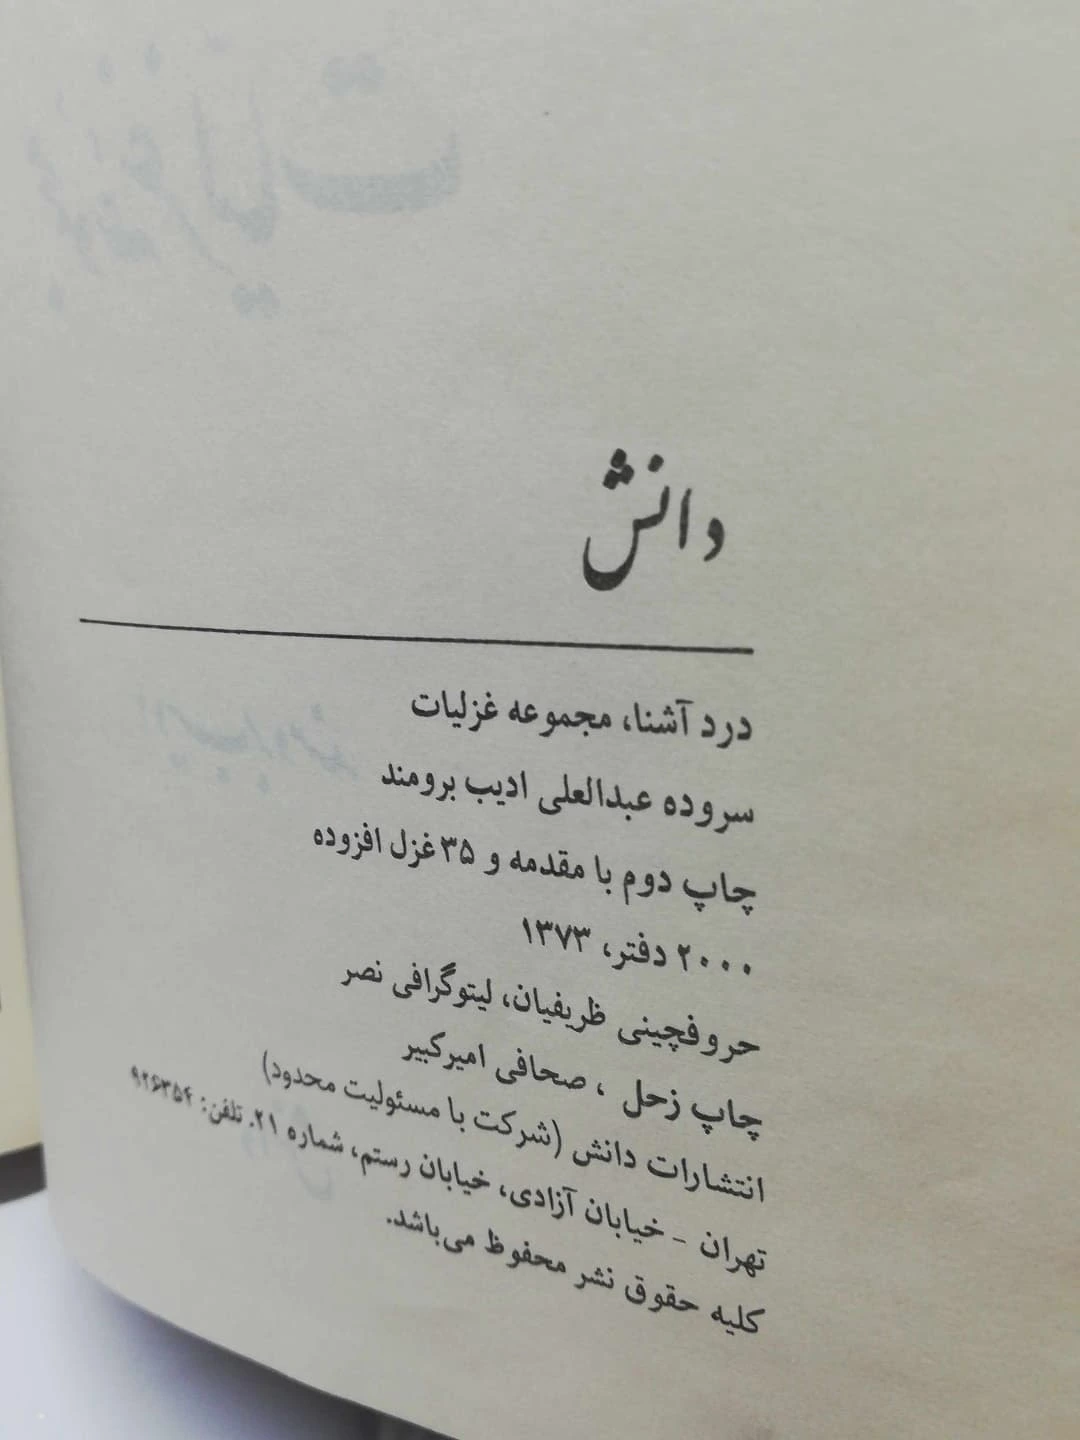 دانش
درد آشنا، مجموعه غزلیات
سروده عبدالعلی ادیب برومند
چاپ دوم با مقدمه و ۳۵ غزل افزوده
۲۰۰۰ دفتر، ۱۳۷۳
حروفچینی ظریفیان، لیتوگرافی نصر
چاپ زحل ، صحافی امیرکبیر
انتشارات دانش (شرکت با مسئولیت محدود)
تهران - خیابان آزادی، خیابان رستم، شماره ۲۱. تلفن: ۹۲۶۳۵۴
کلیه حقوق نشر محفوظ می‌باشد.